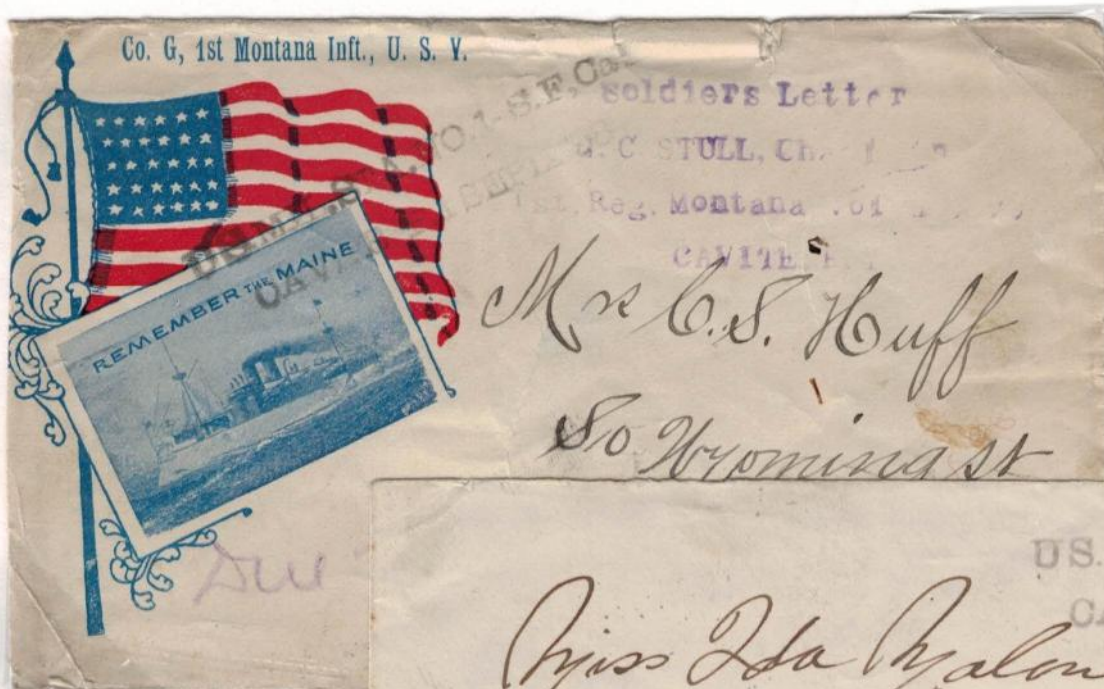 Co. G, 1st Montana Inft., U. S. V.
Soldiers Letter
J. C STULL, Ch
Reg. Montana
CAVITE, P.
NO. 1 - S.F, Cal
REMEMBER THE MAINE
Mrs C. S. Huff
So Wyoming st
Due
US.
CA
Miss Ida Malon